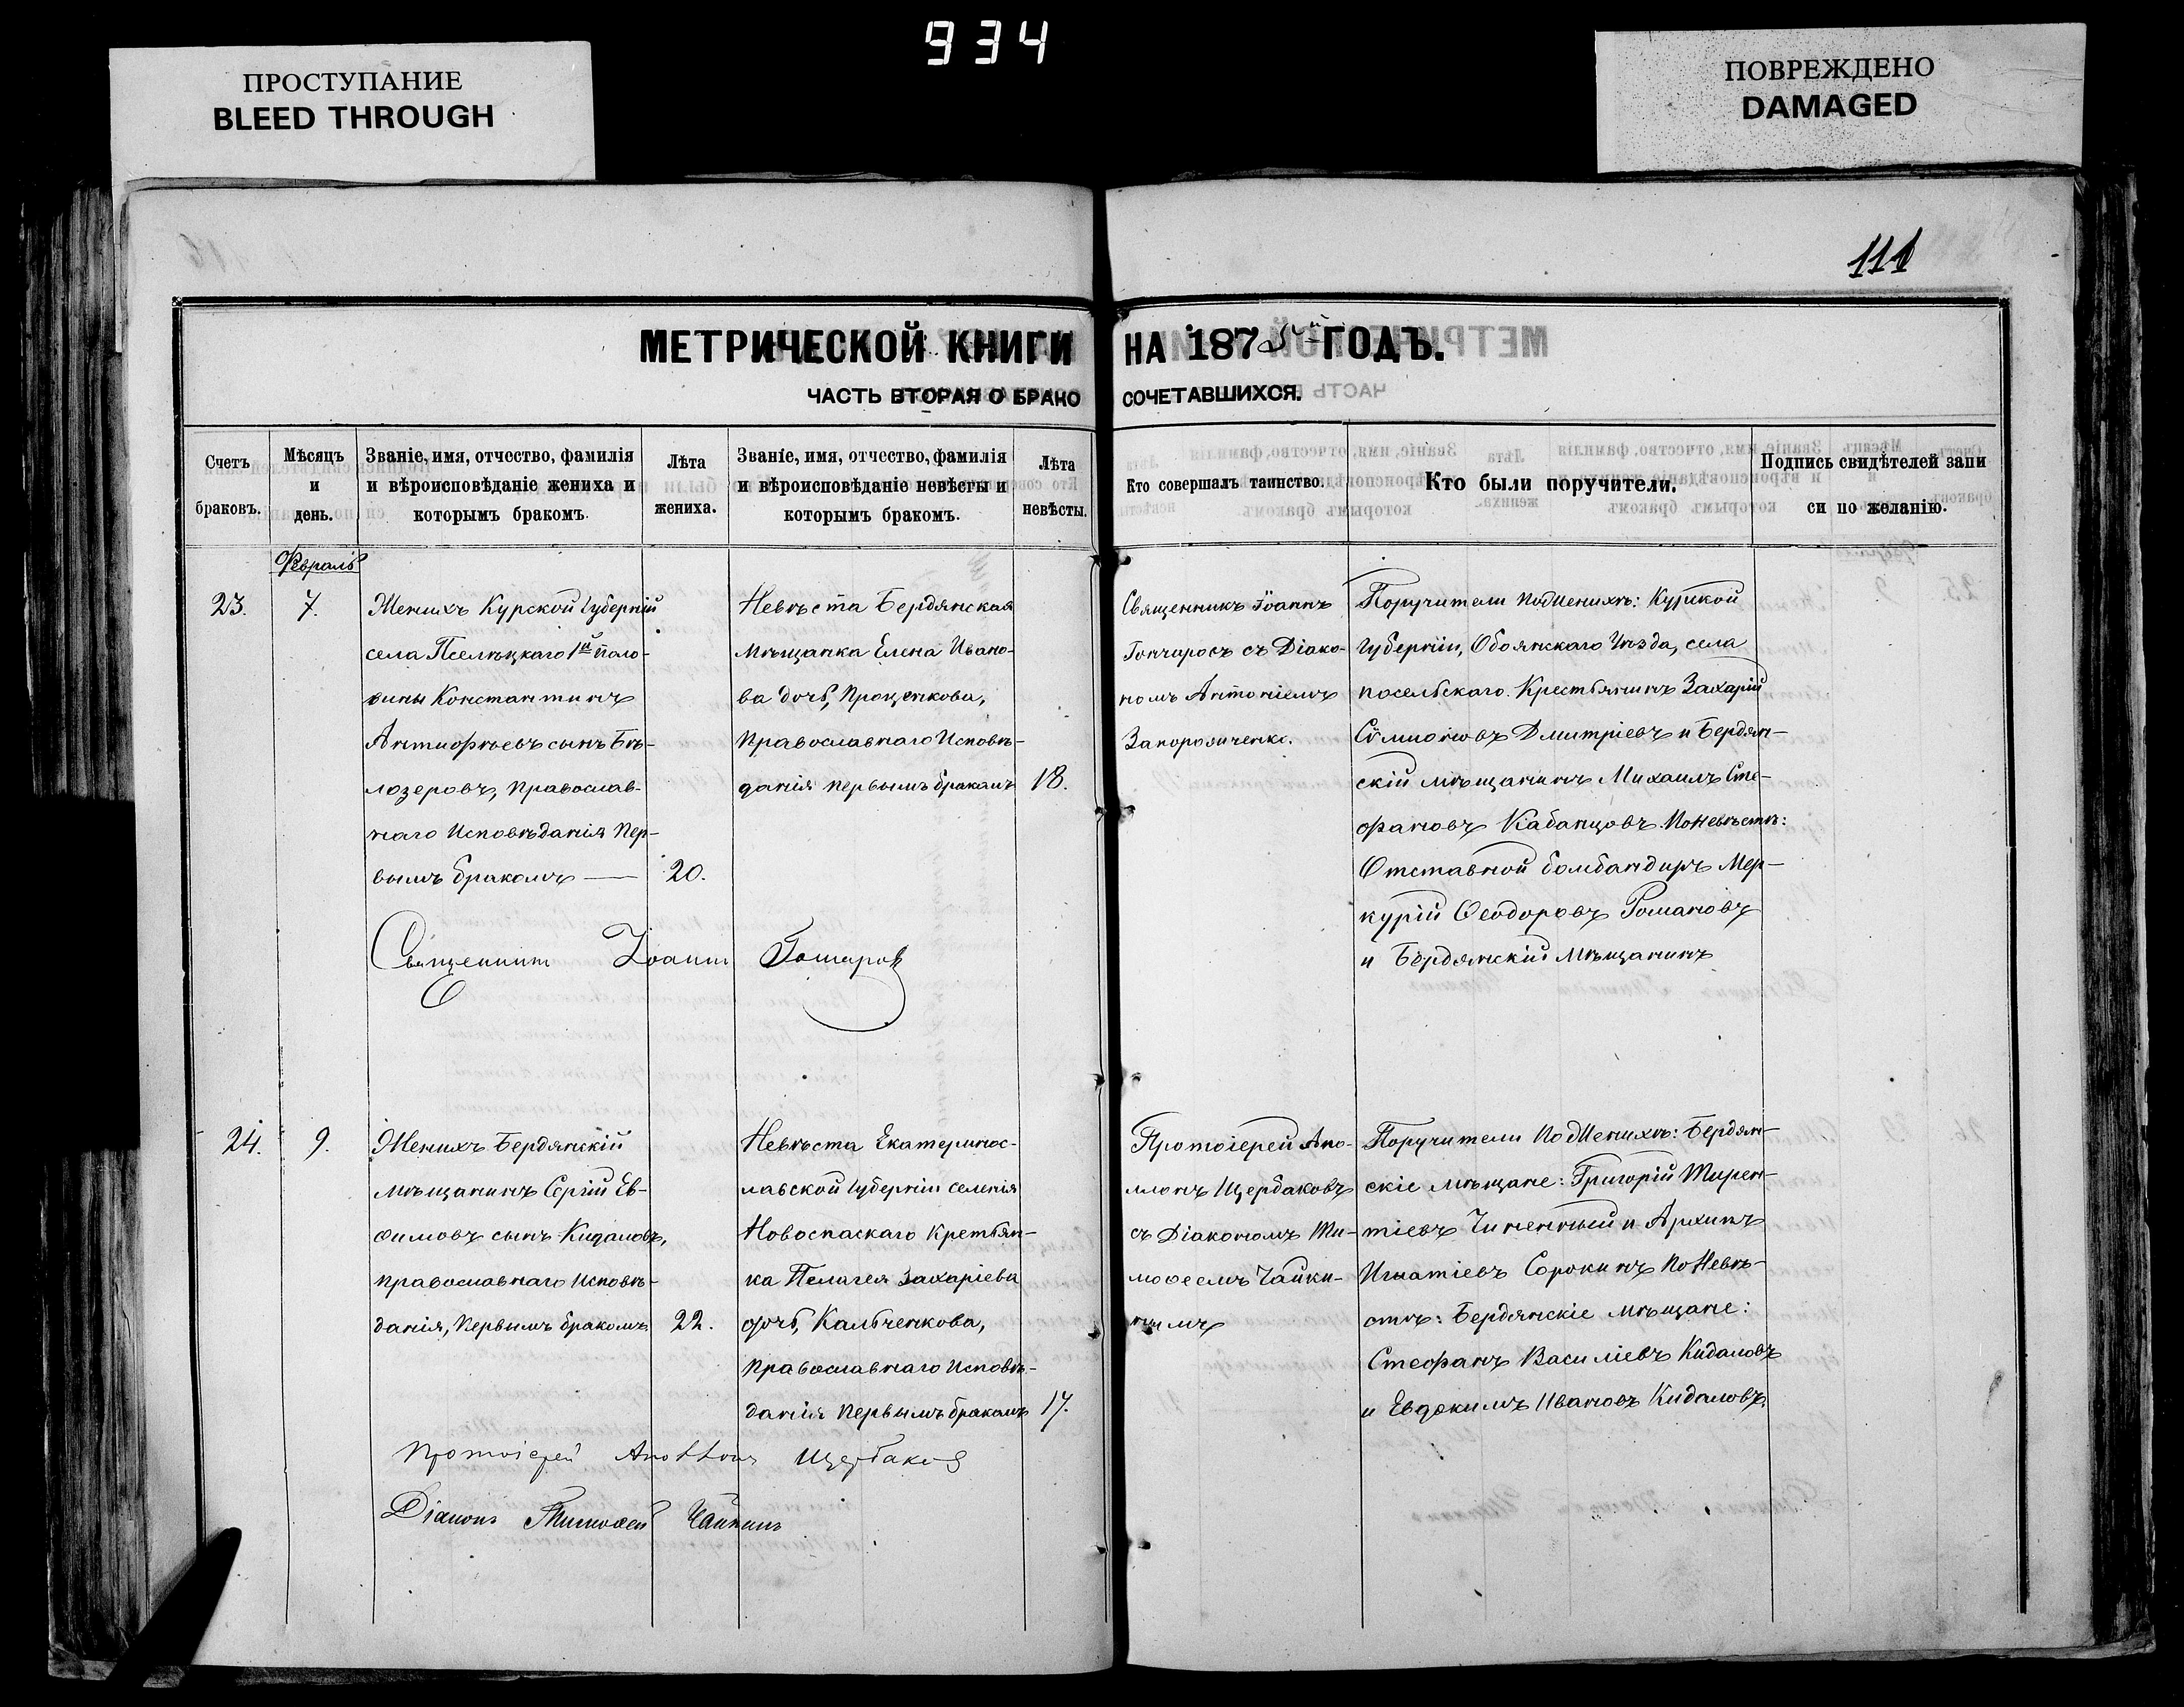 934
ПРОСТУПАНИЕ
BLEED THROUGH
ПОВРЕЖДЕНО
DAMAGED
111
МЕТРИЧЕСКОЙ КНИГИ НА 1875й ГОДЪ.
ЧАСТЬ ВТОРАЯ О БРАКО СОЧЕТАВШИХСЯ.
Счетъ
браковъ.
Мѣсяцъ
и
день.
Званіе, имя, отчество, фамилія
и вѣроисповѣданіе жениха и
которымъ бракомъ.
Лѣта
жениха.
Званіе, имя, отчество, фамилія
и вѣроисповѣданіе невѣсты и
которымъ бракомъ.
Лѣта
невѣсты.
Кто совершалъ таинство.
Кто были поручители.
Подпись свидѣтелей запи
си по желанію.
Февраль
23.
7.
Женихъ Курской Губерніи
села Пселецкаго 1й поло-
вины Константинъ
Антиофьевъ сынъ Бѣ-
лозеровъ, Православ-
наго Исповѣданія Пер-
вымъ бракомъ —
20.
Невѣста Бердянская
мѣщанка Елена Ивано-
ва дочь, Проценкова,
Православнаго Исповѣ-
данія первымъ бракомъ
18.
Священникъ Іоаннъ
Гончаровъ съ Діако-
номъ Антоніемъ
Запорожченко.
Поручители По Женихѣ: Курской
Губерніи, Обоянскаго Уѣзда, села
Крестьянинъ Захарій
Сѵмионовъ Дмитріевъ и Бердян-
скій мѣщанинъ Михаилъ Сте-
фановъ Кабанцовъ. По Невѣстѣ:
Отставной бомбандиръ Мер-
курій Ѳеодоровъ Романовъ
и Бердянскій Мѣщанинъ
Священникъ Іоаннъ Гончаровъ
24.
9.
Женихъ Бердянскій
мѣщанинъ Сергій Ев-
ѳимовъ сынъ Кидаловъ,
православнаго Исповѣ-
данія, Первымъ бракомъ
22.
Невѣста Екатеринос-
лавской Губерніи селенія
Новоспаскаго Кретьян-
ка Пелагея Захаріева
дочь, Кальченкова,
Православнаго Исповѣ-
данія Первымъ бракомъ
17.
Протоіерей Апо-
ллонъ Щербаковъ
съ Діакономъ Ти-
моѳеемъ Чайки-
нымъ
Поручители По Женихѣ: Бердян-
скіе мѣщане: Григорій Терен-
тіевъ и Архипъ
Игнатіевъ Сорокинъ По Невѣ-
стѣ: Бердянскіе мѣщане:
Стефанъ Василіевъ Кидаловъ
и Евдокимъ Ивановъ Кидаловъ.
Протоіерей Аполлонъ Щербаковъ
Діаконъ Тимоѳей Чайкинъ